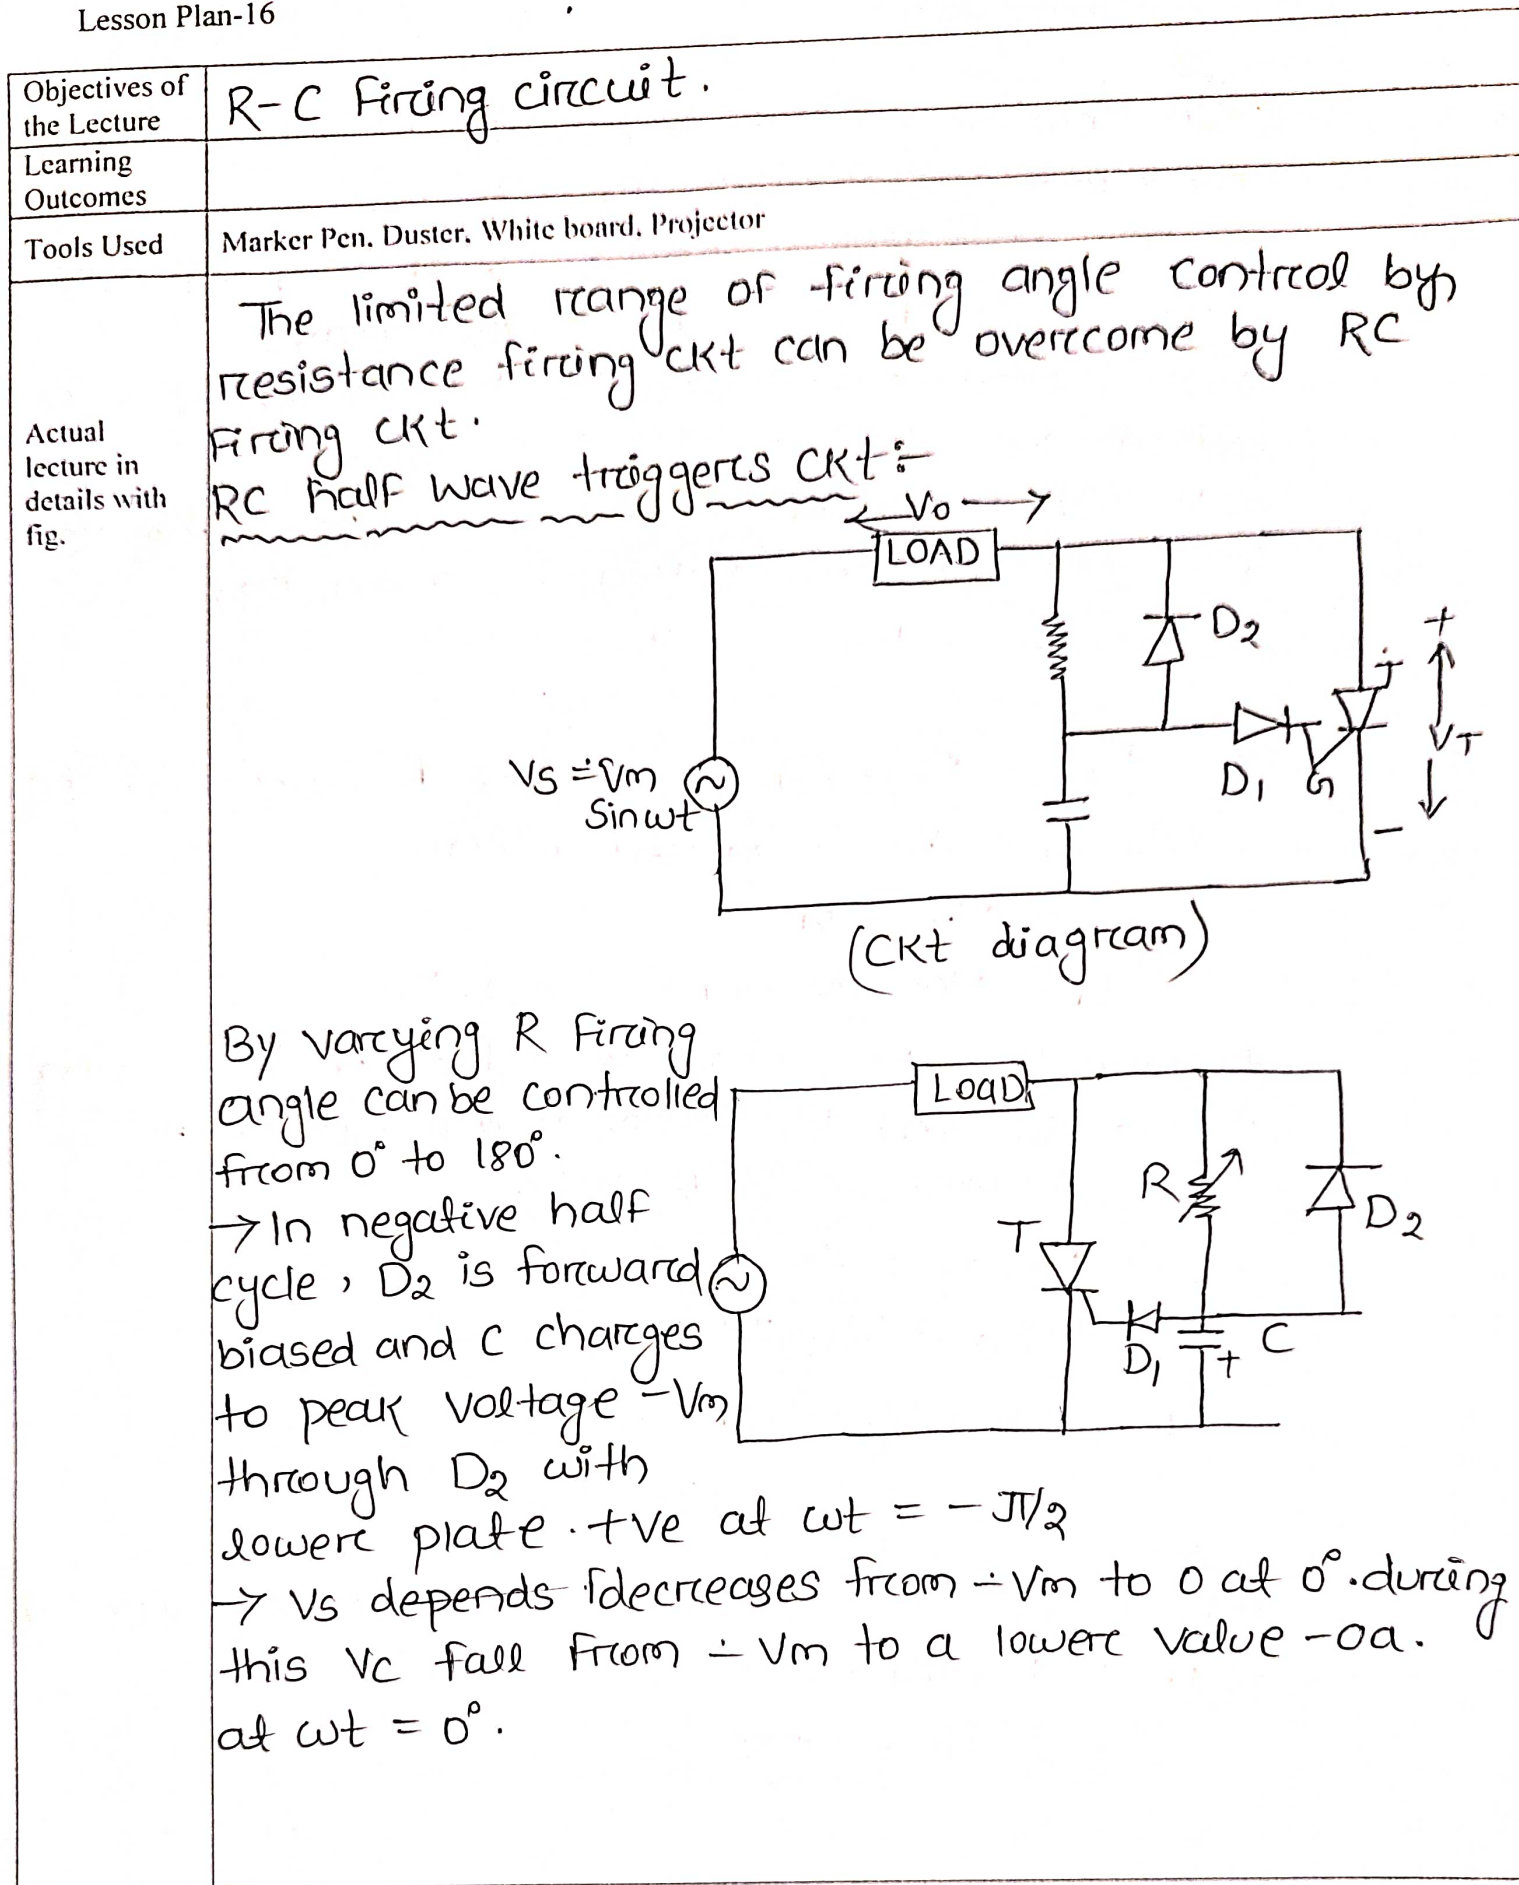 Lesson Plan-16
Objectives of
the Lecture
R-C Firing circuit.
Learning
Outcomes
Tools Used
Marker Pen. Duster. White board. Projector
Actual
lecture in
details with
fig.
The limited range of firing angle control by
resistance firing ckt can be overcome by RC
Firing ckt.
RC half wave triggers ckt:-
Vo
LOAD
D2
+
T
VT
Vs = Vm
Sinwt
D1
G
-
(Ckt diagram)
By varying R Firing
angle can be controlled
from 0° to 180°.
→ In negative half
cycle, D2 is forward
biased and C charges
to peak voltage -Vm
through D2 with
lower plate +ve at ωt = - π/2
→ Vs depends decreases from -Vm to 0 at 0°. during
this Vc fall from - Vm to a lower value -oa.
at ωt = 0°.
LOAD
R
D2
T
D1
+
C